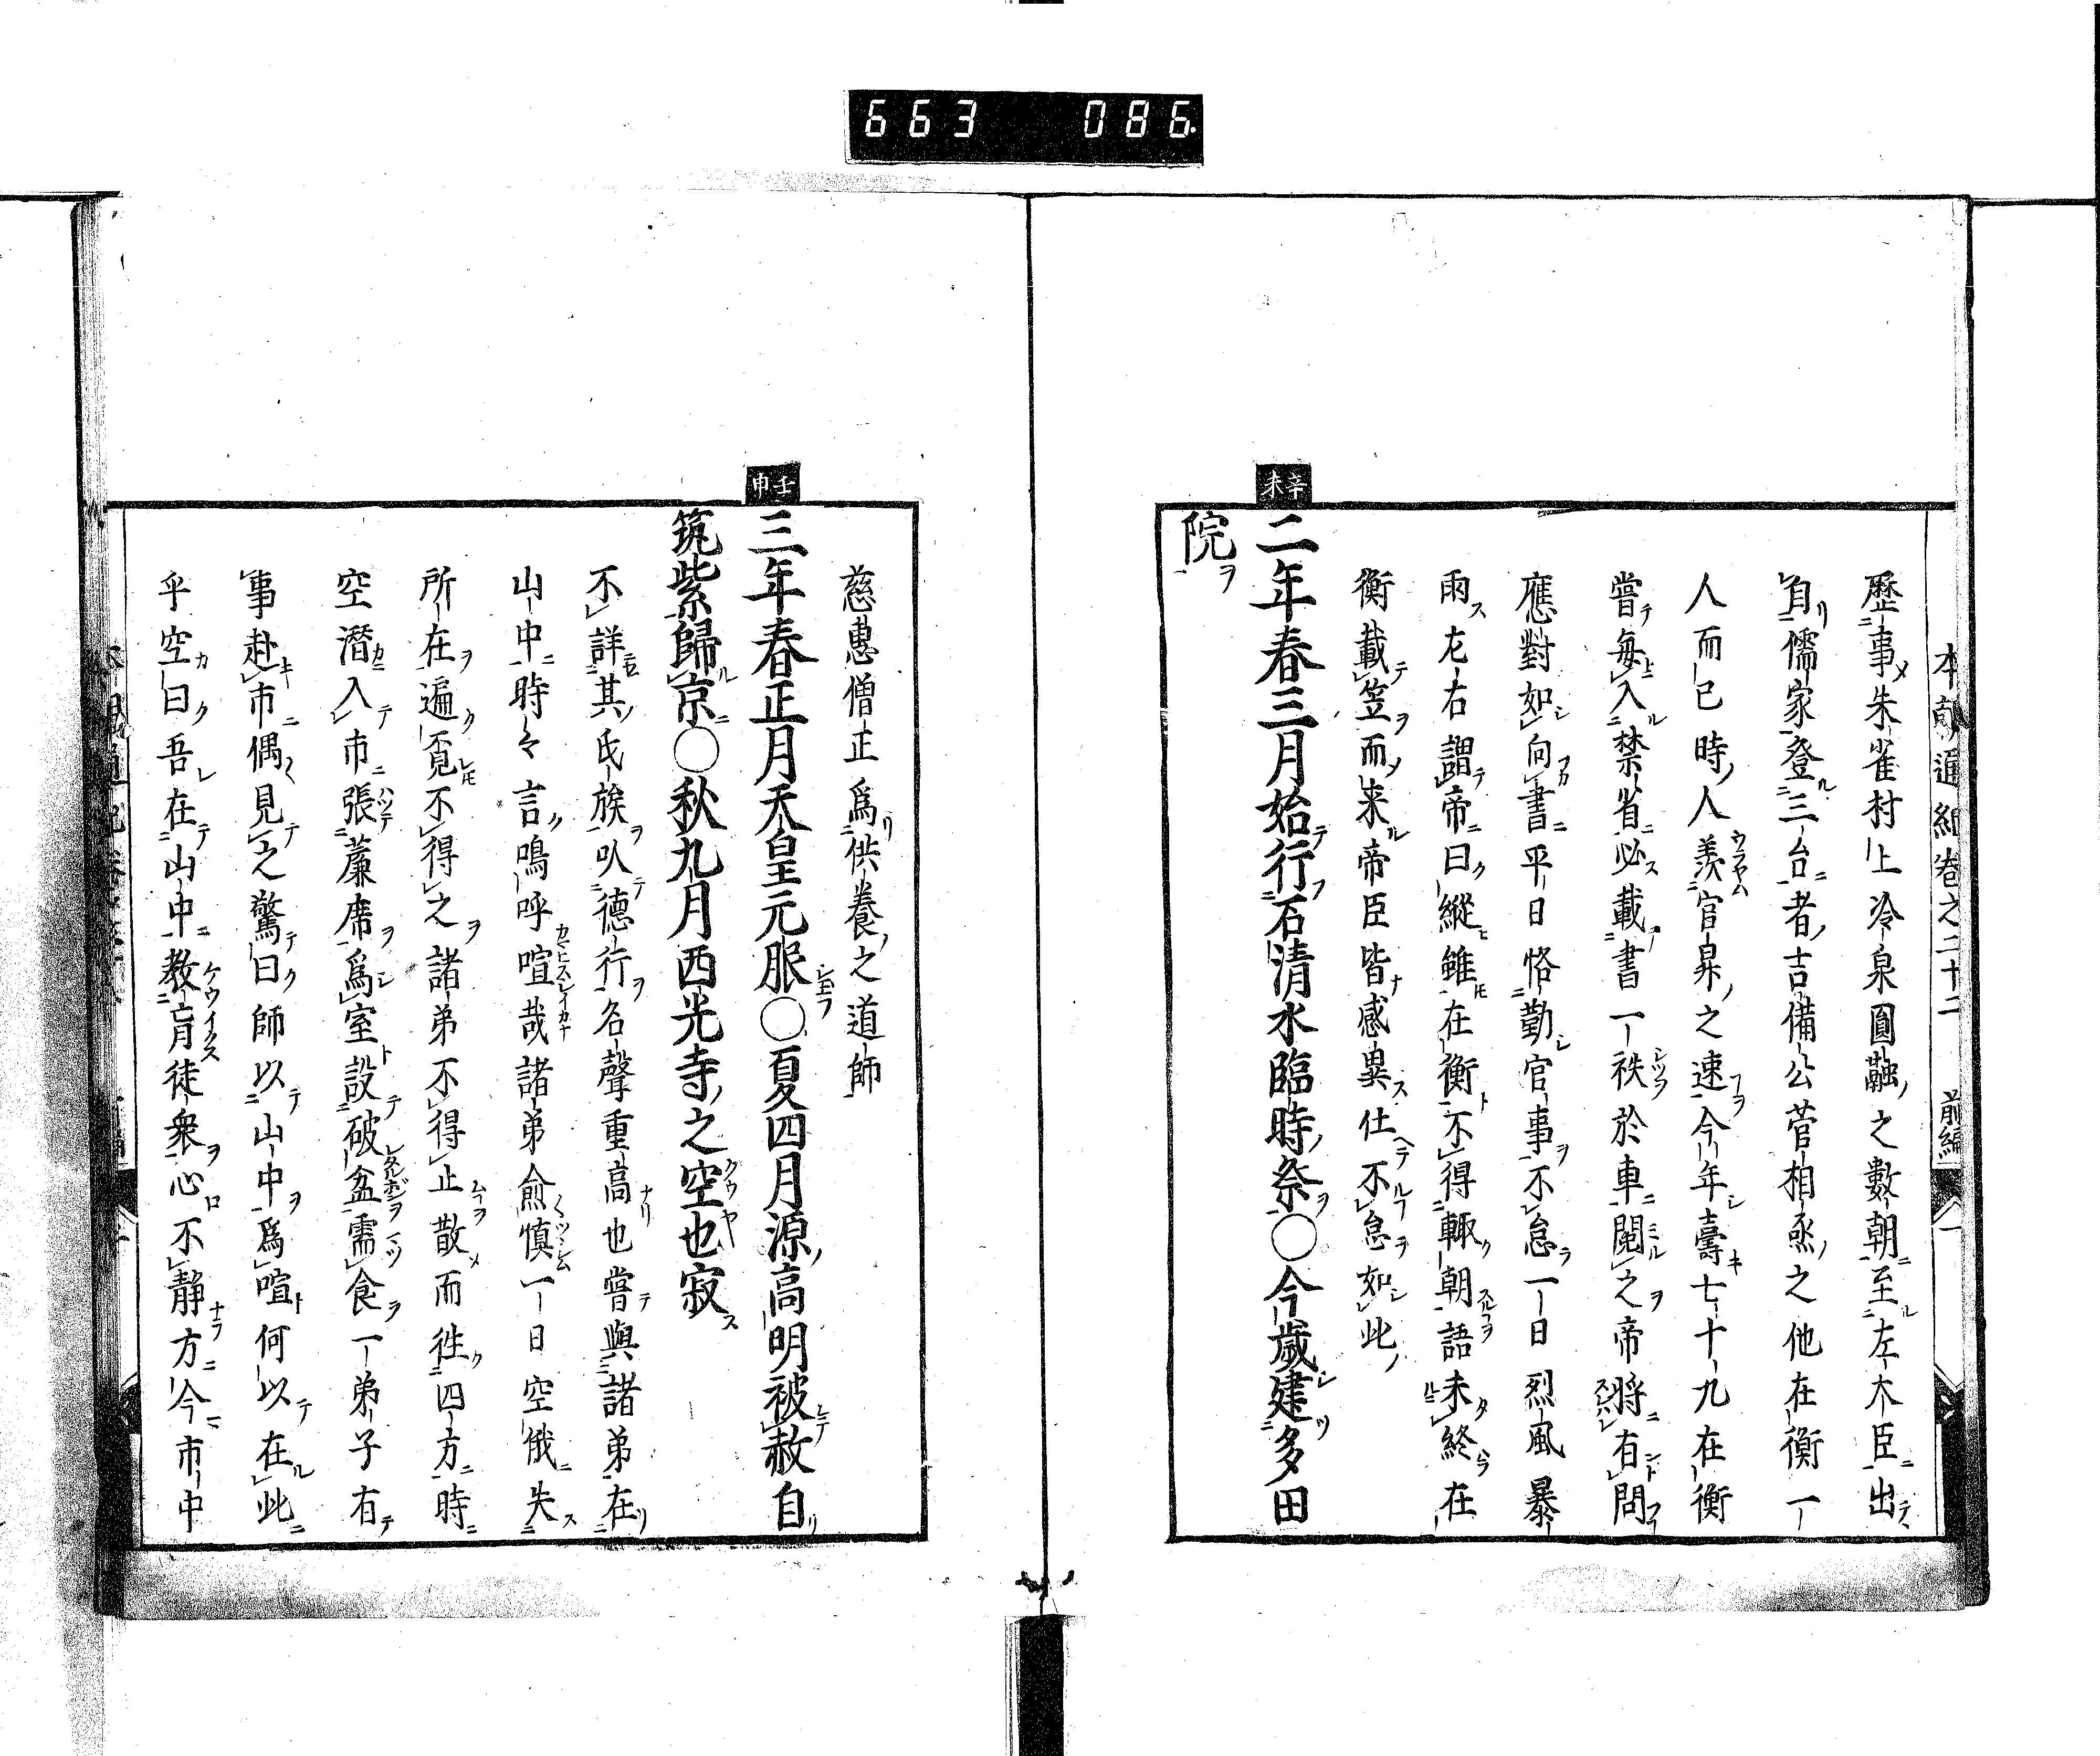 663 086
本朝通紀卷之二十二 前編
歷事朱雀村上冷泉圓融之數朝至左大臣出
自儒家登三台者吉備公菅相丞之他在衡一
人而已時人羨官昇之速今年壽七十九在衡
嘗每入禁省必載書一袟於車閱之帝將有問
應對如向書平日恪勤官事不怠一日烈風暴
雨左右謂帝曰縱雖在衡不得輙朝語未終在
衡載笠而来帝臣皆感異仕不怠如此
辛未
二年春三月始行石清水臨時祭〇今歲建多田
院
慈惠僧正爲供養之道師
壬申
三年春正月天皇元服〇夏四月源高明被赦自
筑紫歸京〇秋九月西光寺之空也寂
不詳其氏族以德行名聲重高也嘗與諸弟在
山中時々言鳴呼喧哉諸弟愈慎一日空俄失
所在遍覓不得之諸弟不得止散而徃四方時
空潛入市張薦席爲室設破盆需食一弟子有
事赴市偶見之驚曰師以山中爲喧何以在此
乎空曰吾在山中教育徒衆心不静方今市中